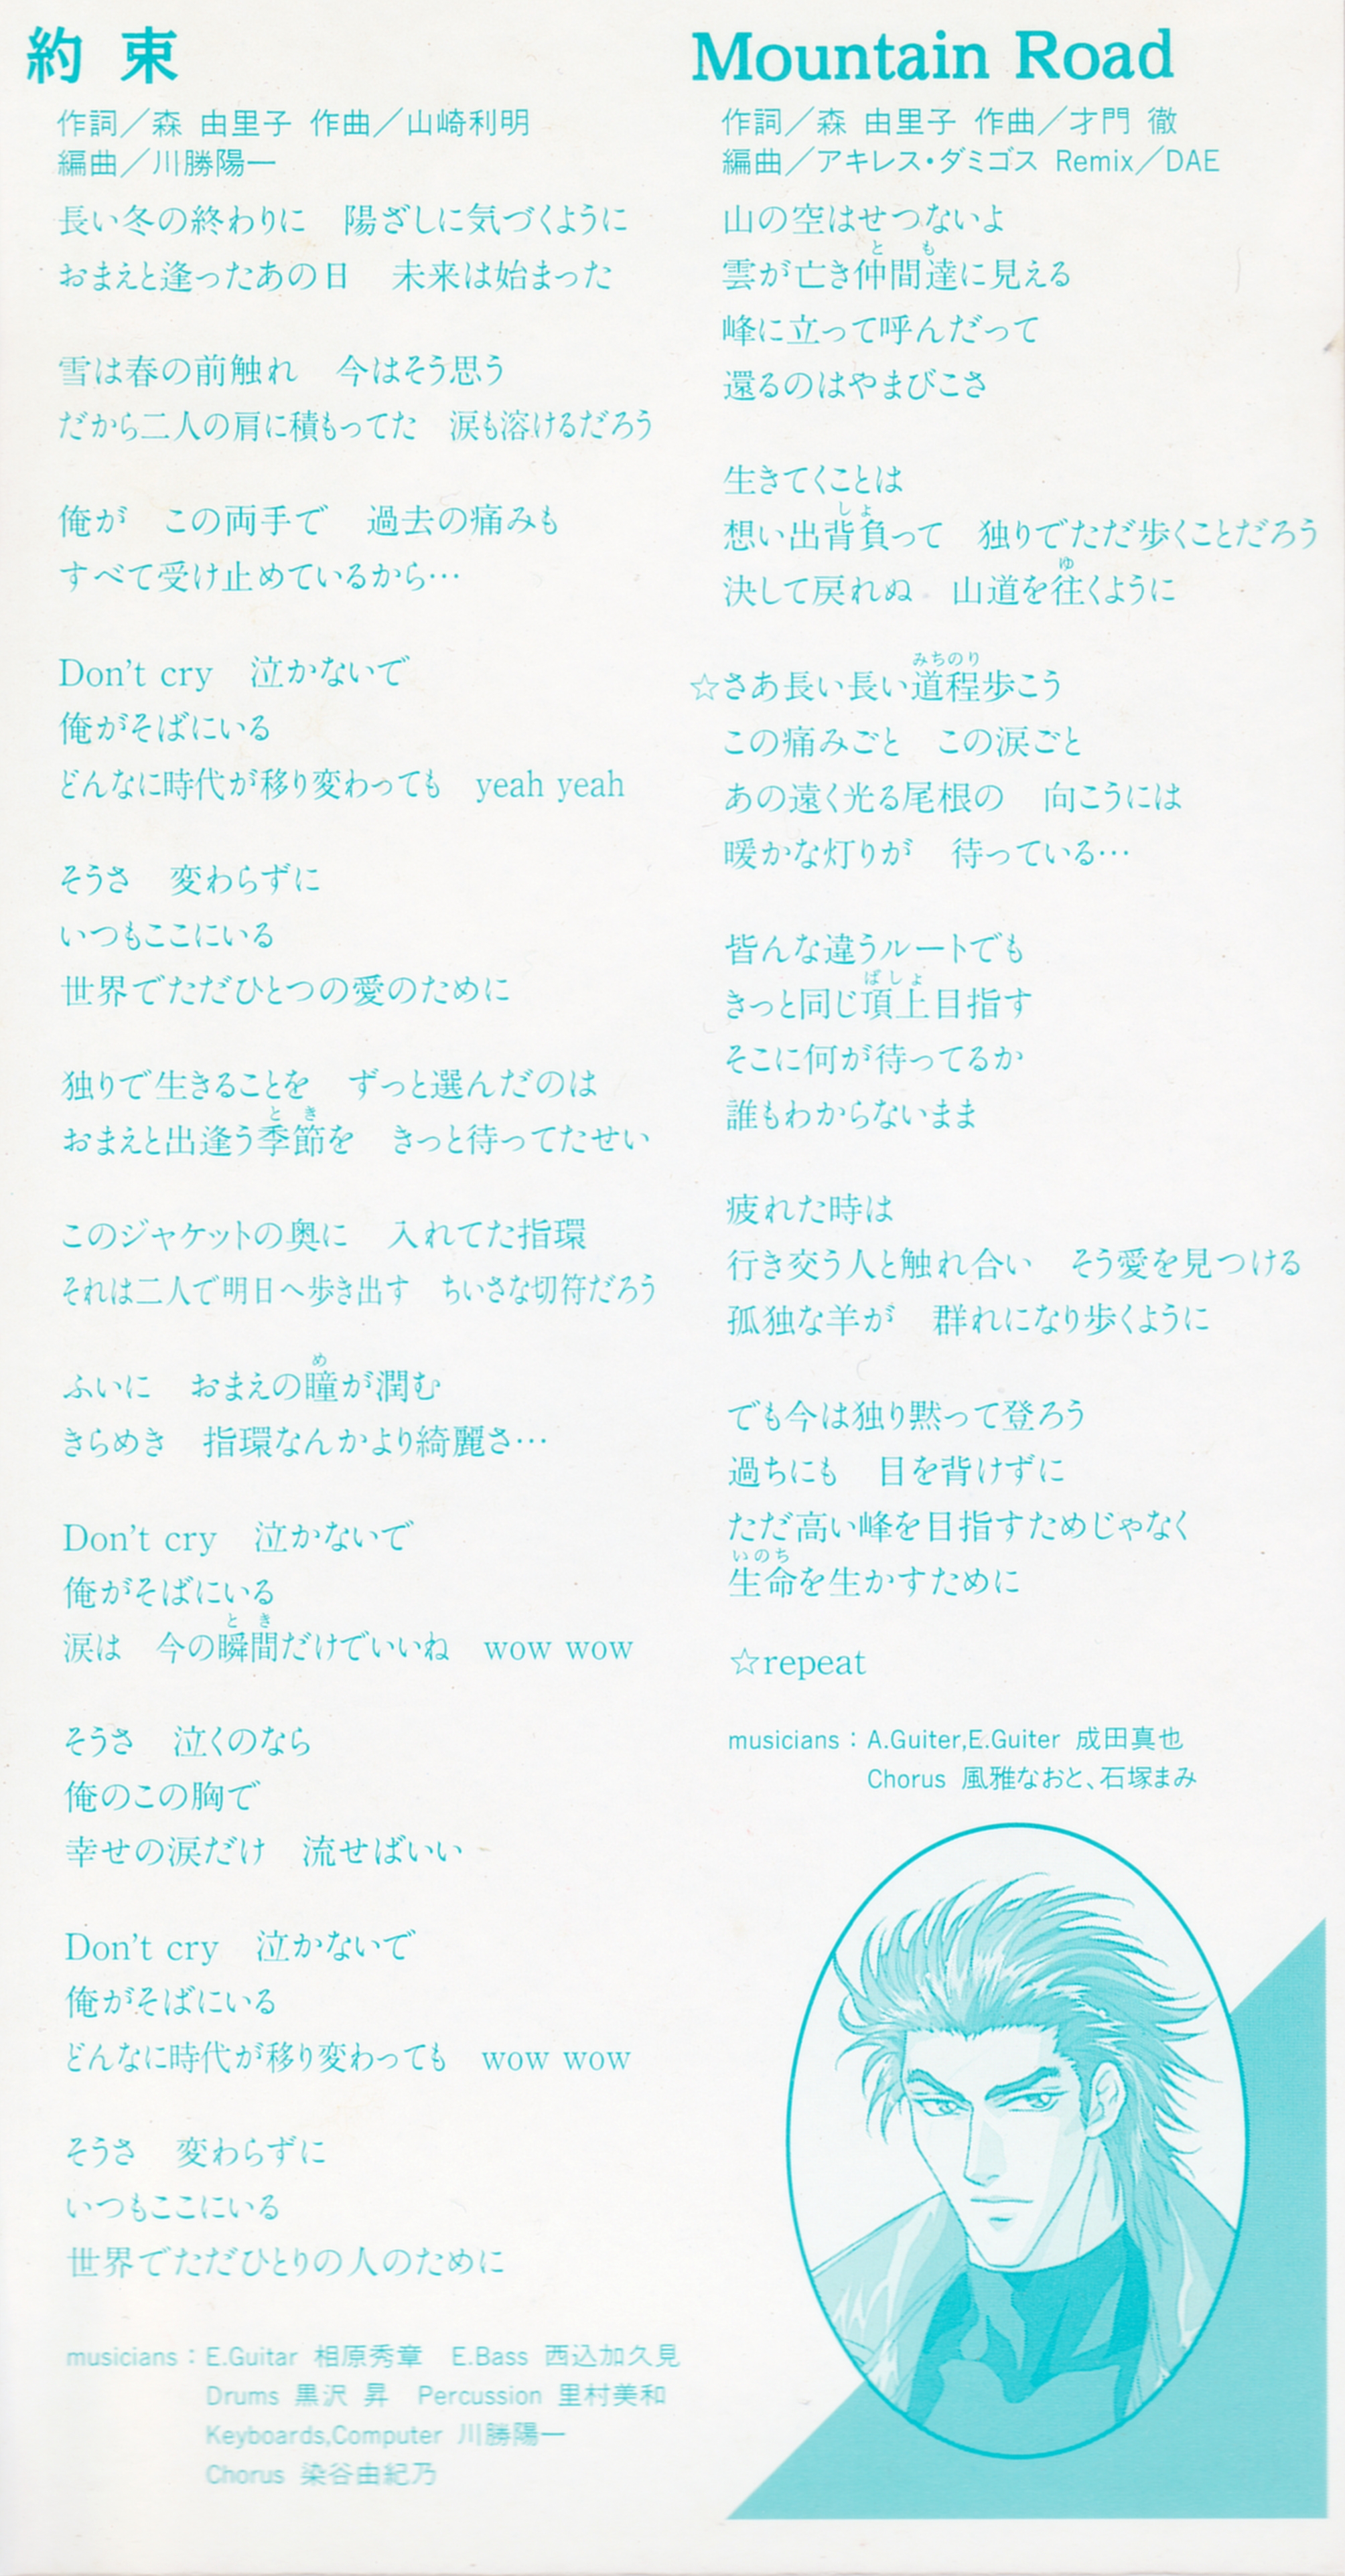 約束
作詞／森 由里子 作曲／山崎利明
編曲／川勝陽一
長い冬の終わりに　陽ざしに気づくように
おまえと逢ったあの日　未来は始まった
雪は春の前触れ　今はそう思う
だから二人の肩に積もってた　涙も溶けるだろう
俺が　この両手で　過去の痛みも
すべて受け止めているから…
Don't cry　泣かないで
俺がそばにいる
どんなに時代が移り変わっても　yeah yeah
そうさ　変わらずに
いつもここにいる
世界でただひとつの愛のために
独りで生きることを　ずっと選んだのは
とき
おまえと出逢う季節を　きっと待ってたせい
このジャケットの奥に　入れてた指環
それは二人で明日へ歩き出す　ちいさな切符だろう
め
ふいに　おまえの瞳が潤む
きらめき　指環なんかより綺麗さ…
Don't cry　泣かないで
俺がそばにいる
とき
涙は　今の瞬間だけでいいね　wow wow
そうさ　泣くのなら
俺のこの胸で
幸せの涙だけ　流せばいい
Don't cry　泣かないで
俺がそばにいる
どんなに時代が移り変わっても　wow wow
そうさ　変わらずに
いつもここにいる
世界でただひとりの人のために
musicians：E.Guitar 相原秀章　E.Bass 西込加久見
Drums 黒沢 昇　Percussion 里村美和
Keyboards,Computer 川勝陽一
Chorus 染谷由紀乃
Mountain Road
作詞／森 由里子 作曲／才門 徹
編曲／アキレス・ダミゴス Remix／DAE
山の空はせつないよ
とも
雲が亡き仲間達に見える
峰に立って呼んだって
還るのはやまびこさ
生きてくことは
しょ
想い出背負って　独りでただ歩くことだろう
ゆ
決して戻れぬ　山道を往くように
みちのり
☆さあ長い長い道程歩こう
この痛みごと　この涙ごと
あの遠く光る尾根の　向こうには
暖かな灯りが　待っている…
皆んな違うルートでも
ばしょ
きっと同じ頂上目指す
そこに何が待ってるか
誰もわからないまま
疲れた時は
行き交う人と触れ合い　そう愛を見つける
孤独な羊が　群れになり歩くように
でも今は独り黙って登ろう
過ちにも　目を背けずに
ただ高い峰を目指すためじゃなく
いのち
生命を生かすために
☆repeat
musicians：A.Guiter,E.Guiter 成田真也
Chorus 風雅なおと、石塚まみ